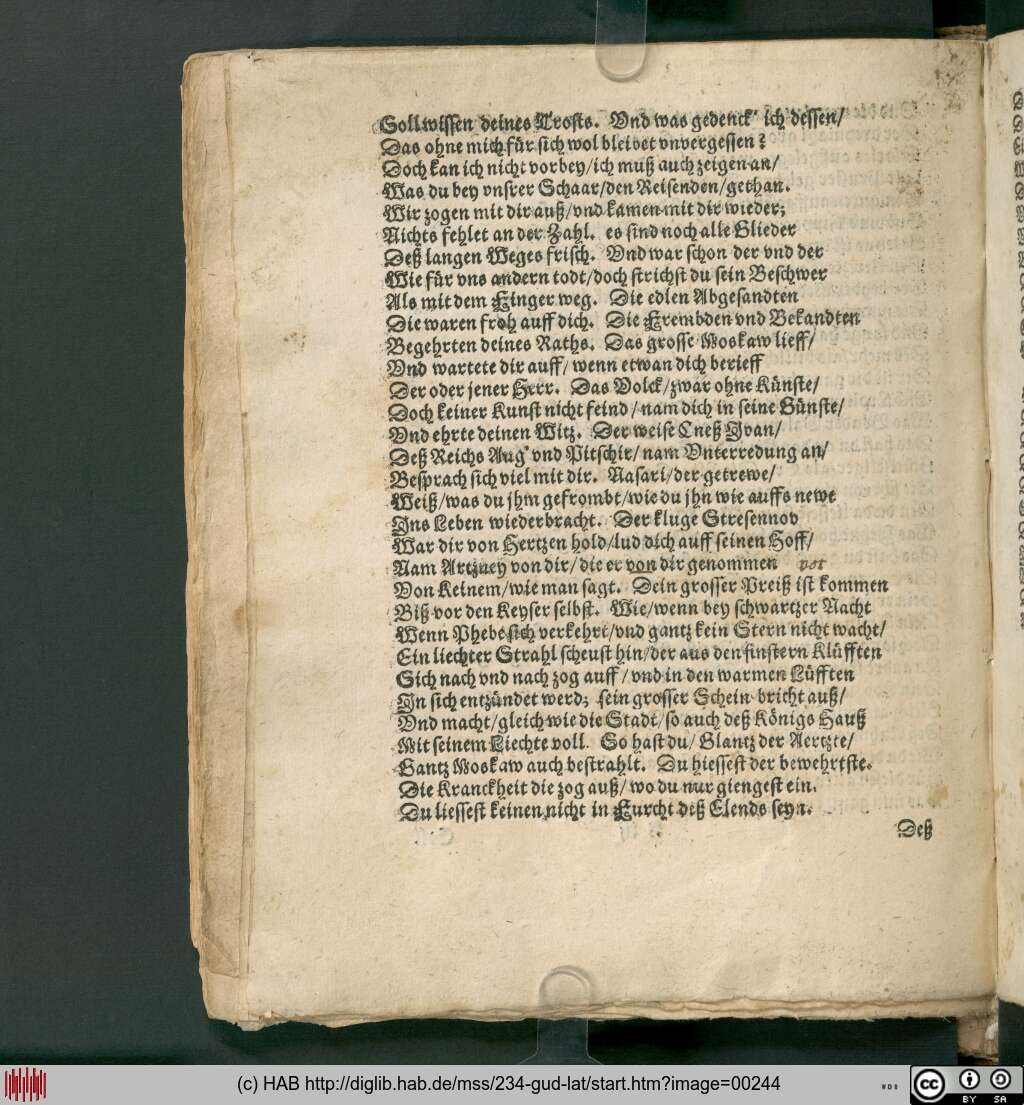 Soll wissen deines Trosts. Vnd was gedenck' ich dessen/
Das ohne mich für sich wol bleibet vnvergessen?
Doch kan ich nicht vorbey/ich muß auch zeigen an/
Was du bey vnsrer Schaar/den Reisenden/gethan.
Wir zogen mit dir auß/vnd kamen mit dir wieder;
Nichts fehlet an der Zahl. es sind noch alle Glieder
Deß langen Weges frisch. Vnd war schon der vnd der
Wie für vns andern todt/doch strichst du sein Beschwer
Als mit dem Finger weg. Die edlen Abgesandten
Die waren froh auff dich. Die Frembden vnd Bekandten
Begehrten deines Raths. Das grosse Moskaw lieff/
Vnd wartete dir auff/wenn etwan dich berieff
Der oder jener Herr. Das Volck/zwar ohne Künste/
Doch keiner Kunst nicht feind/nam dich in seine Günste/
Vnd ehrte deinen Witz. Der weise Cneß Jvan/
Deß Reichs Aug' vnd Pitschir/nam Vnterredung an/
Besprach sich viel mit dir. Nasari/der getrewe/
Weiß/was du jhm gefrombt/wie du jhn wie auffs newe
Ins Leben wiederbracht. Der kluge Stresennov
War dir von Hertzen hold/lud dich auff seinen Hoff/
Nam Artzney von dir/die er von dir genommen vot
Von Keinem/wie man sagt. Dein grosser Preiß ist kommen
Biß vor den Keyser selbst. Wie/wenn bey schwartzer Nacht
Wenn Phebe sich verkehrt/vnd gantz kein Stern nicht wacht/
Ein liechter Strahl scheust hin/der aus den finstern Klüfften
Sich nach vnd nach zog auff/vnd in den warmen Lüfften
In sich entzündet werd; sein grosser Schein bricht auß/
Vnd macht/gleich wie die Stadt/so auch deß Königs Hauß
Mit seinem Liechte voll. So hast du/Glantz der Aertzte/
Gantz Moskaw auch bestrahlt. Du hiessest der bewehrtste.
Die Kranckheit die zog auß/wo du nur giengest ein.
Du liessest keinen nicht in Furcht diß Elends seyn.
Deß
(c) HAB http://diglib.hab.de/mss/234-gud-lat/start.htm?image=00244
WDB
cc BY SA